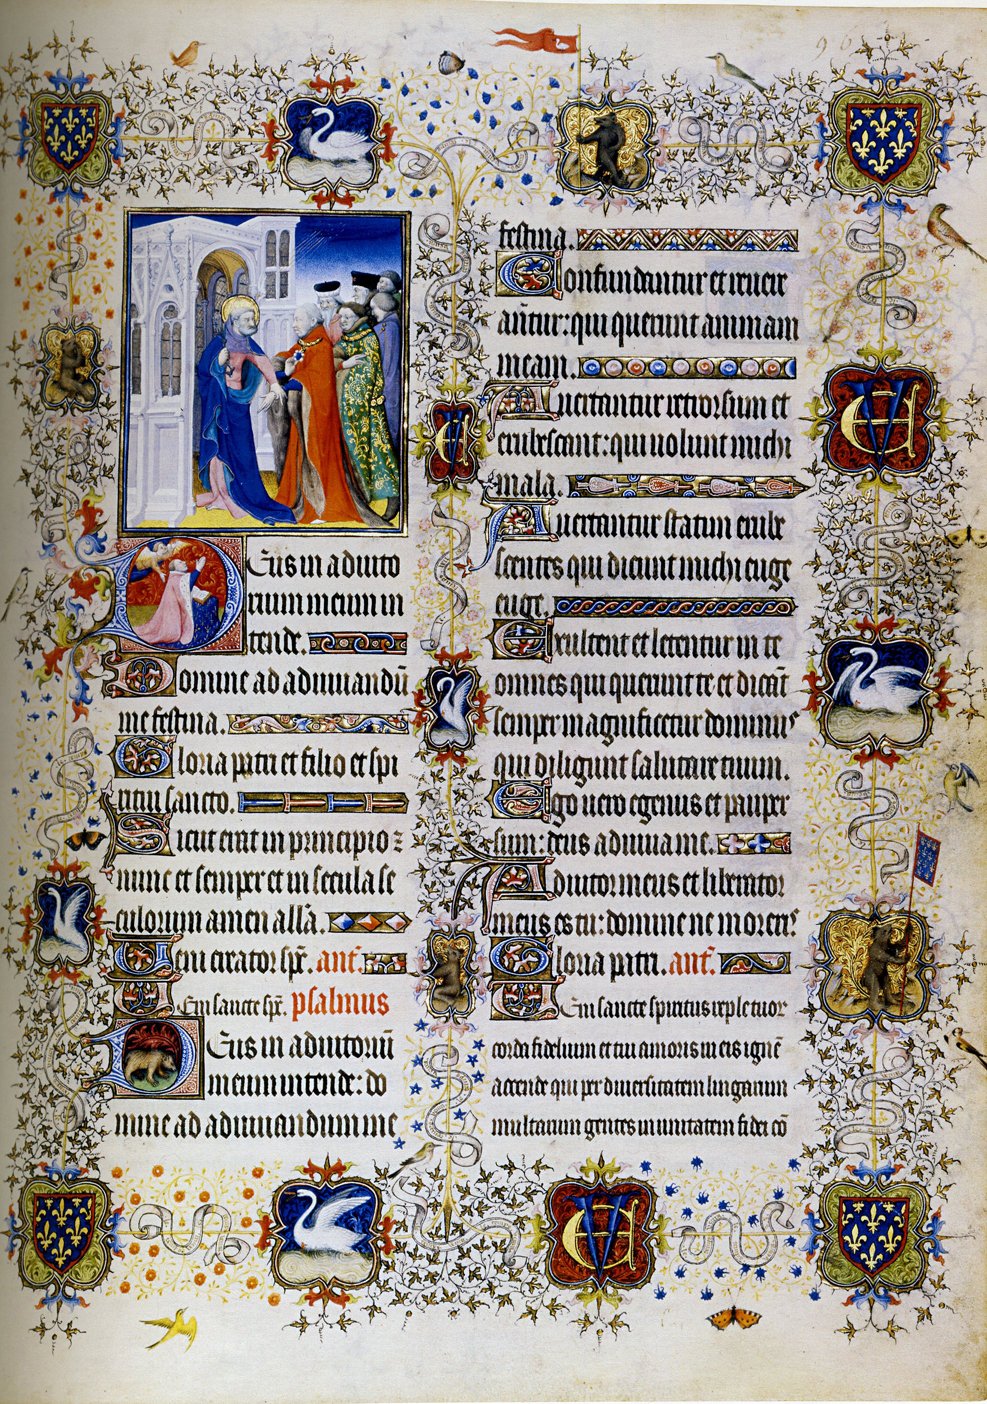 Deus in adiuto
rium meum in
tende.
Domine ad adiuuandū
me festina.
Gloria patri et filio et spi
ritui sancto.
Sicut erat in principio ⁊
nunc et semper et in secula se
culorum amen allā.
Ueni creator sp̄c. anť.
Ueni sancte sp̄c. psalmus
Deus in adiutoriū
meum intende: do
mine ad adiuuandum me
festina.
Confundantur et reuer
antur: qui querunt animam
meam.
Auertantur retrorsum et
erubescant: qui uolunt michi
mala.
Auertantur statim erube
scentes qui dicunt michi euge
euge.
Exultent et letentur in te
omnes qui querunt te et dicāt
semper magnificetur dominus
qui diligunt salutare tuum.
Ego uero egenus et pauper
sum: deus adiuua me.
Adiutor meus et liberator
meus es tu: domine ne moreris
Gloria patri. anť.
Ueni sancte spiritus reple tuor
corda fidelium et tui amoris in eis ignē
accende qui per diuersitatem linguarum
multarum gentes in unitatem fidei cō